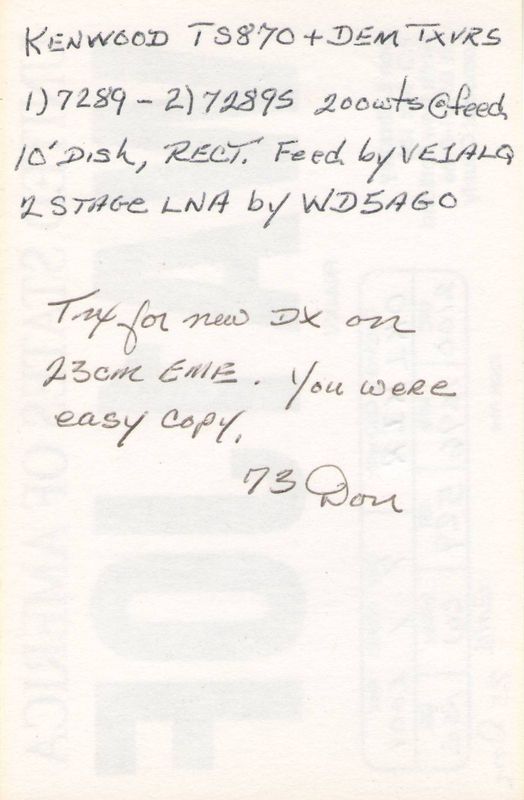 KENWOOD TS870 + DEM TXVRS
1) 7289 - 2) 7289S 200wts@feed
10' Dish, RECT. Feed by VE1ALQ
2 STAGE LNA by WD5AGO
Tnx for new DX on
23cm EME. You were
easy copy.
73 Don